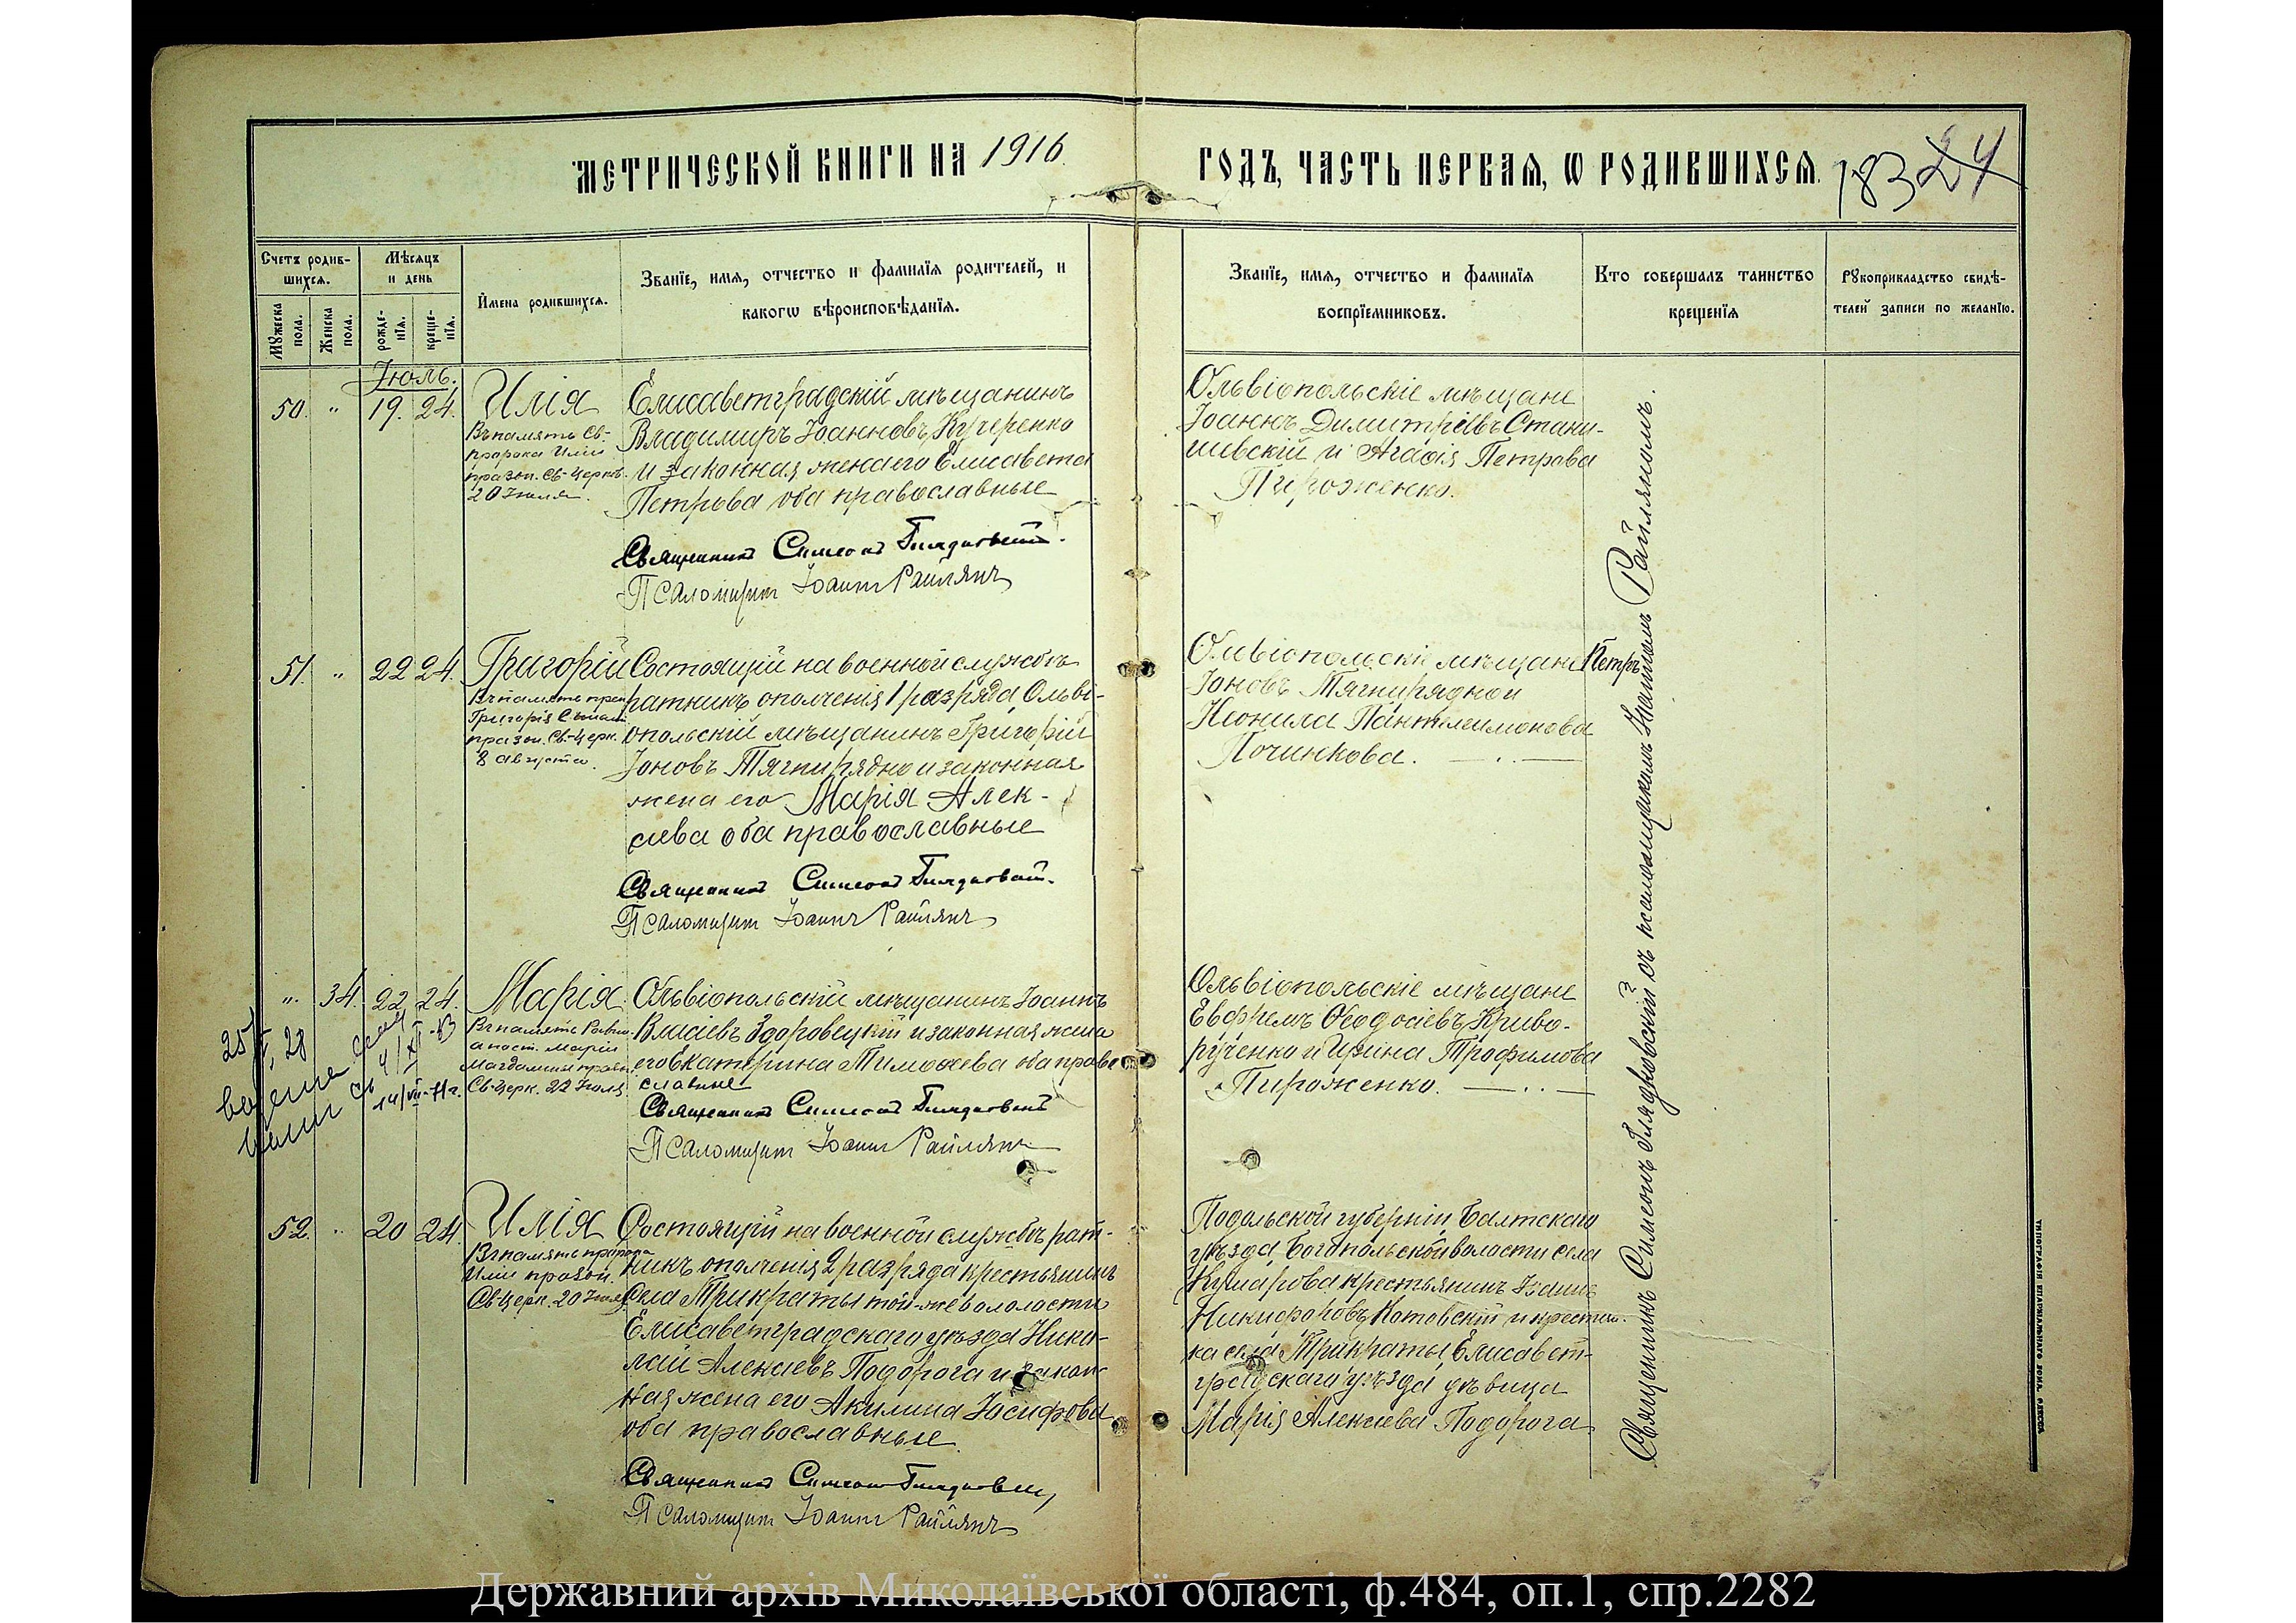 МЕТРИЧЕСКОЙ КНИГИ НА 1916
ГОДЪ, ЧАСТЬ ПЕРВАЯ, Ѡ РОДИВШИХСЯ.
183 24
Счетъ родив-
шихся.
Мужеска
пола.
Женска
пола.
Мѣсяцъ
и день
рожде-
нїя.
креще-
нїя.
Имена родившихся.
Званїе, имя, отчество и фамилїя родителей, и
какогѡ вѣроисповѣданїя.
Званїе, имя, отчество и фамилїя
воспрїемниковъ.
Кто совершалъ таинство
крещенїя
Рукоприкладство свидѣ-
телей записи по желанїю.
Іюль.
50. " 19. 24.
Илія
Въ память Св.
пророка Иліи
празд. Св. Церковь
20 Іюля.
Елисаветградскій мѣщанинъ
Владимиръ Іоанновъ Кучеренко
и законная жена его Елисавета
Петрова оба православные
Священникъ Симеонъ Глядковскій.
Псаломщикъ Іоаннъ Райлянъ
Ольвіопольскіе мѣщане
Іоаннъ Димитріевъ Стани-
шевскій и Агафія Петрова
Пироженко.
51. " 22 24.
Григорій
Въ память преп.
Григорія
празд. Св. Церк.
8 августа.
Состоящій на военной службѣ
ратникъ ополченія 1 разряда, Ольві-
опольскій мѣщанинъ Григорій
Іоновъ Тягнирядно и законная
жена его Марія Алек-
сѣева оба православные
Священникъ Симеонъ Глядковскій.
Псаломщикъ Іоаннъ Райлянъ
Ольвіопольскіе мѣщане Петръ
Іоновъ Тягнирядно и
Неонила Пантелеимонова
Починкова.
" 34. 22 24.
Марія
Въ память Равно-
апост. Маріи
Магдалины празд.
Св. Церк. 22 Іюля.
Ольвіопольскій мѣщанинъ Іоаннъ
Власіевъ Здоровецкій и законная жена
его Екатерина Тимофеева оба право-
славные
Священникъ Симеонъ Глядковскій
Псаломщикъ Іоаннъ Райлянъ
Ольвіопольскіе мѣщане
Евфремъ Ѳеодосіевъ Криво-
рученко и Ирина Трофимова
Пироженко.
52. " 20 24.
Илія
Въ память пророка
Иліи празд.
Св. Церк. 20 Іюля
Состоящій на военной службѣ рат-
никъ ополченія 2 разряда крестьянинъ
села Трикраты той-же вололости
Елисаветградскаго уѣзда Нико-
лай Алексіевъ Подорога и закон-
ная жена его Акилина Іосифова
оба православные
Священникъ Симеонъ Глядковскій
Псаломщикъ Іоаннъ Райлянъ
Подольской губерніи Балтскаго
уѣзда Богопольской волости села
Кумарова крестьянинъ Іоаннъ
Никифоровъ Котовскій и крестьян-
ка села Трикраты, Елисавет-
градскаго уѣзда дѣвица
Марія Алексіева Подорога
Священникъ Симеонъ Глядковскій съ псаломщикомъ Іоанномъ Райляномъ.
ТИПОГРАФІЯ ЕПАРХІАЛЬНАГО ДОМА, ОДЕССА.
Державний архів Миколаївської області, ф.484, оп.1, спр.2282